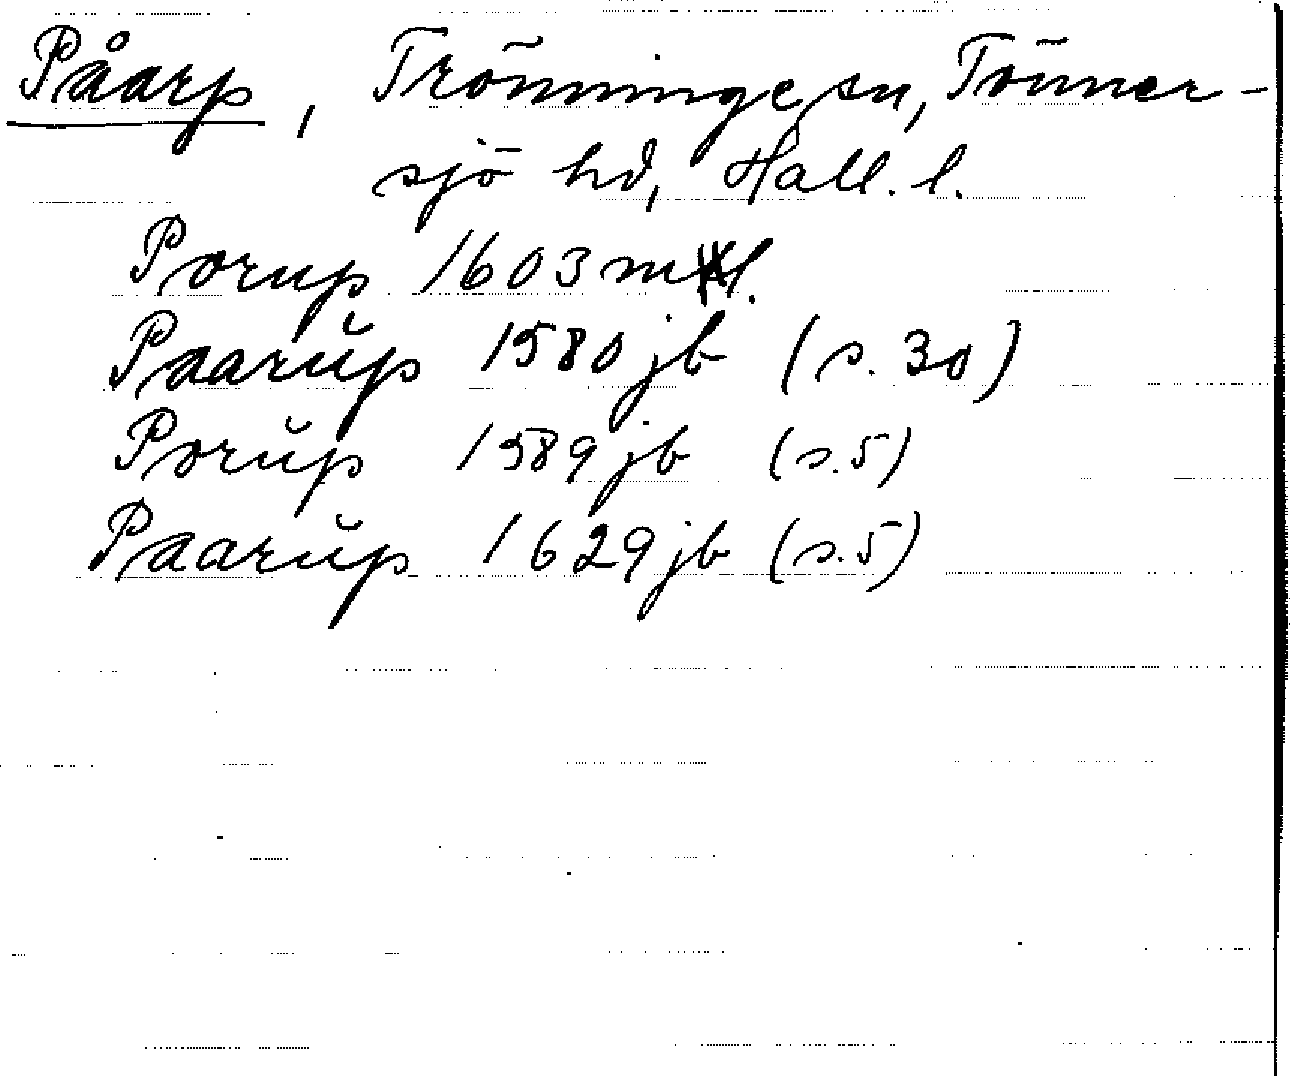 Påarp, Trönninge sn, Tönner-
sjö hd, Hall. l.
Porup 1603 mtl.
Paarŭp 1580 jb (s. 30)
Porŭp 1589 jb (s. 5)
Paarŭp 1629 jb (s. 5)